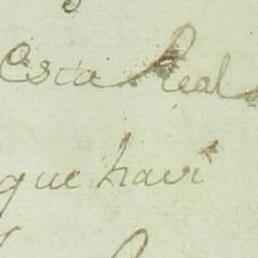 esta Real
que havi